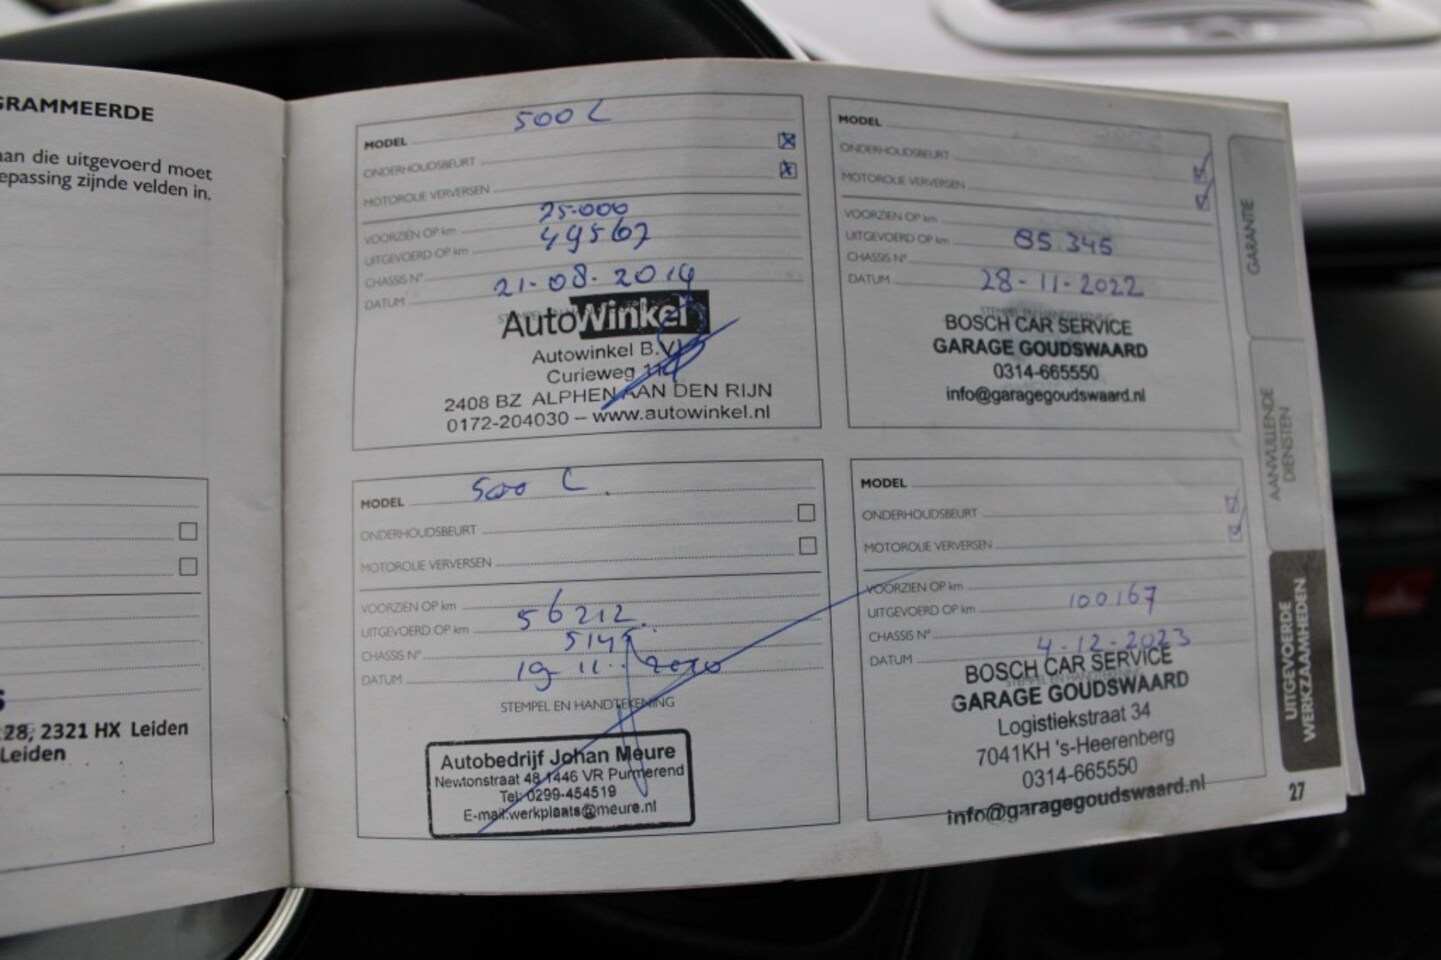 GRAMMEERDE
aan die uitgevoerd moet
epassing zijnde velden in.
28, 2321 HX Leiden
Leiden
MODEL 500 L
ONDERHOUDSBEURT
MOTOROLIE VERVERSEN
VOORZIEN OP km 25.000
UITGEVOERD OP km 49567
CHASSIS N°
DATUM 21-08-2019
AutoWinkel
Autowinkel B.V.
Curieweg
2408 BZ ALPHEN AAN DEN RIJN
0172-204030 – www.autowinkel.nl
MODEL 500 L.
ONDERHOUDSBEURT
MOTOROLIE VERVERSEN
VOORZIEN OP km
UITGEVOERD OP km 56212.
CHASSIS N°
DATUM 19-11-2020
STEMPEL EN HANDTEKENING
Autobedrijf Johan Meure
Newtonstraat 48 1446 VR Purmerend
Tel: 0299-454519
E-mail:werkplaats@meure.nl
MODEL
ONDERHOUDSBEURT
MOTOROLIE VERVERSEN
VOORZIEN OP km
UITGEVOERD OP km 85.345
CHASSIS N°
DATUM 28-11-2022
BOSCH CAR SERVICE
GARAGE GOUDSWAARD
0314-665550
info@garagegoudswaard.nl
MODEL
ONDERHOUDSBEURT
MOTOROLIE VERVERSEN
VOORZIEN OP km
UITGEVOERD OP km 100167
CHASSIS N°
DATUM 4-12-2023
BOSCH CAR SERVICE
STEMPEL EN HANDTEKENING
GARAGE GOUDSWAARD
Logistiekstraat 34
7041KH 's-Heerenberg
0314-665550
info@garagegoudswaard.nl
GARANTIE
AANVULLENDE
DIENSTEN
UITGEVOERDE
WERKZAAMHEDEN
27